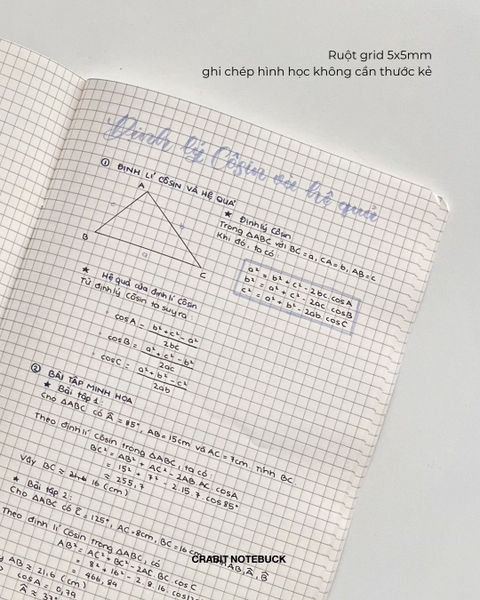 Ruột grid 5x5mm
ghi chép hình học không cần thước kẻ
Định lý Côsin và hệ quả
① ĐỊNH LÍ CÔSIN VÀ HỆ QUẢ
A
B
C
a
★ Định lý Côsin
Trong △ABC với BC = a, CA = b, AB = c
Khi đó, ta có
a² = b² + c² - 2bc.cosA
b² = a² + c² - 2ac.cosB
c² = a² + b² - 2ab.cosC
★ Hệ quả của định lí Côsin
Từ định lý Côsin ta suy ra
cosA = (b² + c² - a²) / 2bc
cosB = (a² + c² - b²) / 2ac
cosC = (a² + b² - c²) / 2ab
② BÀI TẬP MINH HỌA
★ Bài tập 1:
Cho △ABC có Â = 85°, AB = 15cm và AC = 7cm. Tính BC.
Theo định lí Côsin trong △ABC, ta có
BC² = AB² + AC² - 2AB.AC.cosA
= 15² + 7² - 2.15.7.cos85°
≈ 255,7
Vậy BC ≈ 16 (cm)
★ Bài tập 2:
Cho △ABC có Ĉ = 125°, AC = 8cm, BC = 16cm AB, Â, B̂
Theo định lí Côsin trong △ABC, có
AB² = AC² + BC² - 2AC.BC.cosC
= 8² + 16² - 2.8.16.cos12
≈ 466,84
AB ≈ 21,6 (cm)
cosA ≈ 0,79
Â ≈ 37°
CRABIT NOTEBUCK